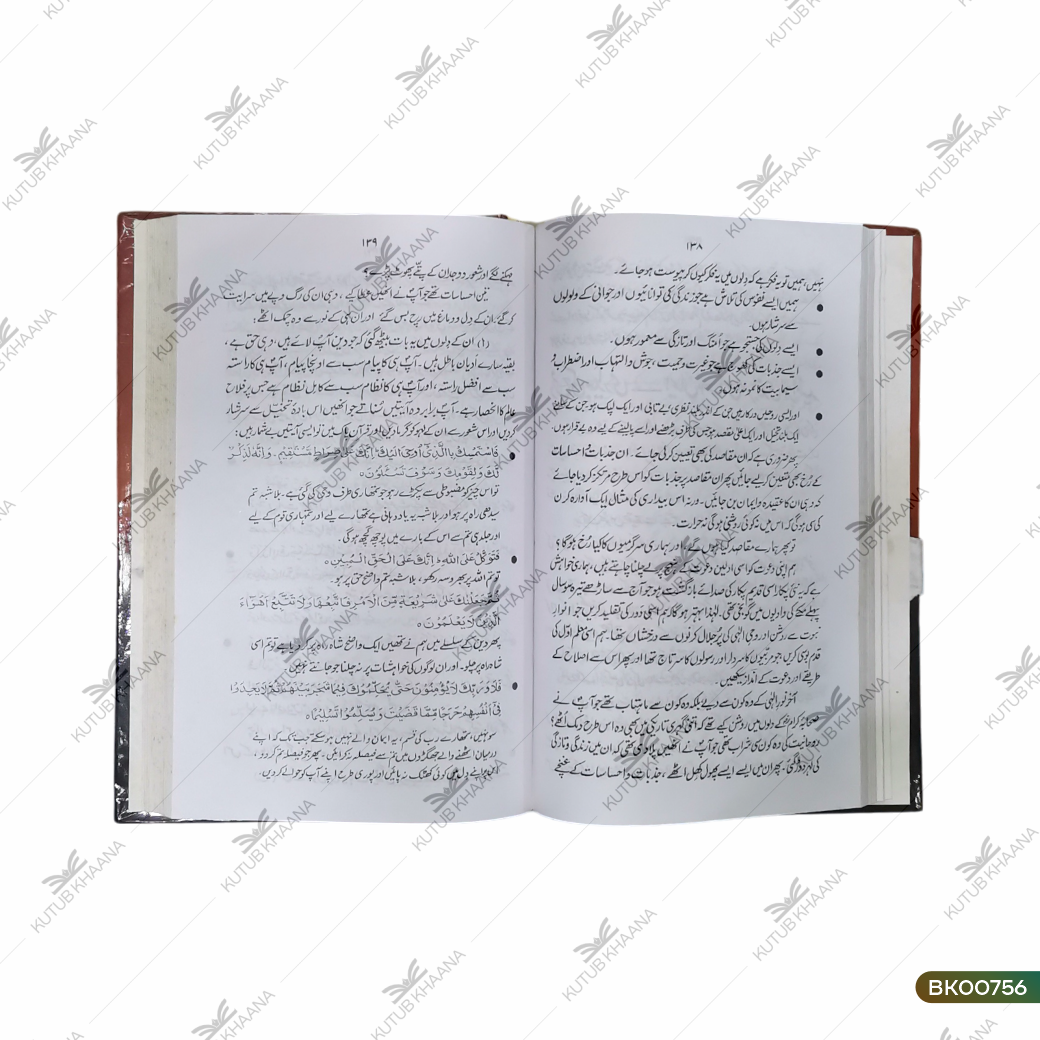 ۱۳۸
نہیں، ہمیں تو یہ فکر ہے کہ دلوں میں یہ فکر کیوں کر پیوست ہو جائے۔
● ہمیں ایسے نفوس کی تلاش ہے جو زندگی کی توانائیوں اور جوانی کے ولولوں
سے سرشار ہوں۔
● ایسے دلوں کی جستجو ہے جو اُمنگ اور تازگی سے معمور ہوں۔
● ایسے جذبات کی کھوج ہے جو غیرت و حمیت، جوش و التہاب اور اضطراب و
سیمابیت کا نمونہ ہوں۔
● اور ایسی روحیں درکار ہیں جن کے اندر بلند نظری بے تابی اور ایک لپک ہو جن کے سامنے
ایک بلند تخیل اور ایک اعلیٰ مقصد ہو جس کی طرف بڑھنے اور اسے پا لینے کے لیے وہ بے قرار ہوں۔
پھر ضروری ہے کہ ان مقاصد کی بھی تعیین کر لی جائے۔ ان جذبات و احساسات
کے رخ بھی متعین کر لیے جائیں پھر ان مقاصد پر جذبات کو اس طرح مرتکز کر دیا جائے
کہ وہی ان کا عقیدہ و ایمان بن جائیں۔ ورنہ اس بیداری کی مثال ایک آوارہ کرن
کی سی ہوگی کہ اس میں نہ کوئی روشنی ہوگی نہ حرارت۔
تو پھر ہمارے مقاصد کیا ہوں گے؟ اور ہماری سرگرمیوں کا کیا رخ ہوگا؟
ہم اپنی دعوت کو اسی اولین دعوت کے نہج پر لے چلنا چاہتے ہیں، ہماری خواہش
ہے کہ یہ نئی پکار اسی قدیم پکار کی صدائے بازگشت ہو جو آج سے ساڑھے تیرہ سو سال
پہلے مکے کی وادیوں میں گونجی تھی۔ لہٰذا بہتر ہوگا ہم اسی دور کی تقلید کریں جو انوارِ
نبوت سے روشن اور وحی الٰہی کی پُر جلال کرنوں سے درخشاں تھا۔ ہم اسی معلم اوّل کی
قدم بوسی کریں جو مربّیوں کا سردار اور رسولوں کا سرتاج تھا اور پھر اس سے اصلاح کے
طریقے اور دعوت کے انداز سیکھیں۔
آخر نورِ الٰہی کے وہ کون سے دیے بلکہ وہ کون سے ماہتاب تھے جو آپؐ نے
صحابہ کرامؓ کے دلوں میں روشن کیے تھے کہ اتنی گہری تاریکی میں بھی وہ اس طرح دمک اُٹھے؟
روحانیت کی وہ کون سی شراب تھی جو آپؐ نے انھیں پلا دی تھی کہ ان میں زندگی و تازگی
کی لہر دوڑ گئی۔ پھر ان میں ایسے ایسے پھول کھل اٹھے، جذبات و احساسات کے غنچے
۱۳۹
مہکنے لگے اور شعور و وجدان کے پتّے پھوٹ پڑے؟
تین احساسات تھے جو آپؐ نے انھیں عطا کیے، وہی ان کی رگ و پے میں سرایت
کر گئے، ان کے دل و دماغ میں رچ بس گئے اور ان ہی کے نور سے وہ چمک اٹھے:
(۱) ان کے دلوں میں یہ بات بیٹھ گئی کہ جو دین آپؐ لائے ہیں، وہی حق ہے،
بقیہ سارے ادیان باطل ہیں۔ آپؐ ہی کا پیام سب سے اونچا پیام، آپؐ ہی کا راستہ
سب سے افضل راستہ، اور آپؐ ہی کا نظام سب سے کامل نظام ہے جس پر فلاحِ
عالم کا انحصار ہے۔ آپؐ برابر وہ آیتیں سناتے جو انھیں اس بادۂ تخیّل سے سرشار
کر دیں اور اس شعور سے ان کے لہو کو گرما دیں اور قرآن پاک میں تو ایسی آیتیں بے شمار ہیں:
● فَاسْتَمْسِكْ بِالَّذِيْ أُوْحِيَ إِلَيْكَ إِنَّكَ عَلٰى صِرَاطٍ مُّسْتَقِيْمٍ۔ وَإِنَّهٗ لَذِكْرٌ
لَّكَ وَلِقَوْمِكَ وَسَوْفَ تُسْئَلُوْنَ ○
تو اس چیز کو مضبوطی سے پکڑے رہو جو تمھاری طرف وحی کی گئی ہے۔ بلا شبہ تم
سیدھی راہ پر ہو اور بلا شبہ یہ یاد دہانی ہے تمھارے لیے اور تمہاری قوم کے لیے
اور جلد ہی تم سے اس کے بارے میں پوچھ گچھ ہوگی۔
● فَتَوَكَّلْ عَلَى اللّٰهِ إِنَّكَ عَلَى الْحَقِّ الْمُبِيْنِ ○
تو تم اللہ پر بھروسہ رکھو، بلا شبہ تم واضح حق پر ہو۔
ثُمَّ جَعَلْنٰكَ عَلٰى شَرِيْعَةٍ مِّنَ الْأَمْرِ فَاتَّبِعْهَا وَلَا تَتَّبِعْ أَهْوَآءَ
الَّذِيْنَ لَا يَعْلَمُوْنَ ○
پھر دین کے سلسلے میں ہم نے تمھیں ایک واضح شاہ راہ پر کر دیا ہے تو تم اسی
شاہ راہ پر چلو۔ اور ان لوگوں کی خواہشات پر نہ چلنا جو جانتے نہیں۔
● فَلَا وَرَبِّكَ لَا يُؤْمِنُوْنَ حَتّٰى يُحَكِّمُوْكَ فِيْمَا شَجَرَ بَيْنَهُمْ ثُمَّ لَا يَجِدُوْا
فِيْ أَنْفُسِهِمْ حَرَجًا مِّمَّا قَضَيْتَ وَيُسَلِّمُوْا تَسْلِيْمًا ○
سو نہیں، تمھارے رب کی قسم، یہ ایمان والے نہیں ہو سکتے جب تک کہ اپنے
درمیان اٹھنے والے جھگڑوں میں تم سے فیصلہ نہ کرائیں، پھر جو فیصلہ تم کر دو،
اس پر اپنے دل میں کوئی کھٹک نہ پائیں اور پوری طرح اپنے آپ کو حوالے کر دیں۔
KUTUB KHAANA
BK00756